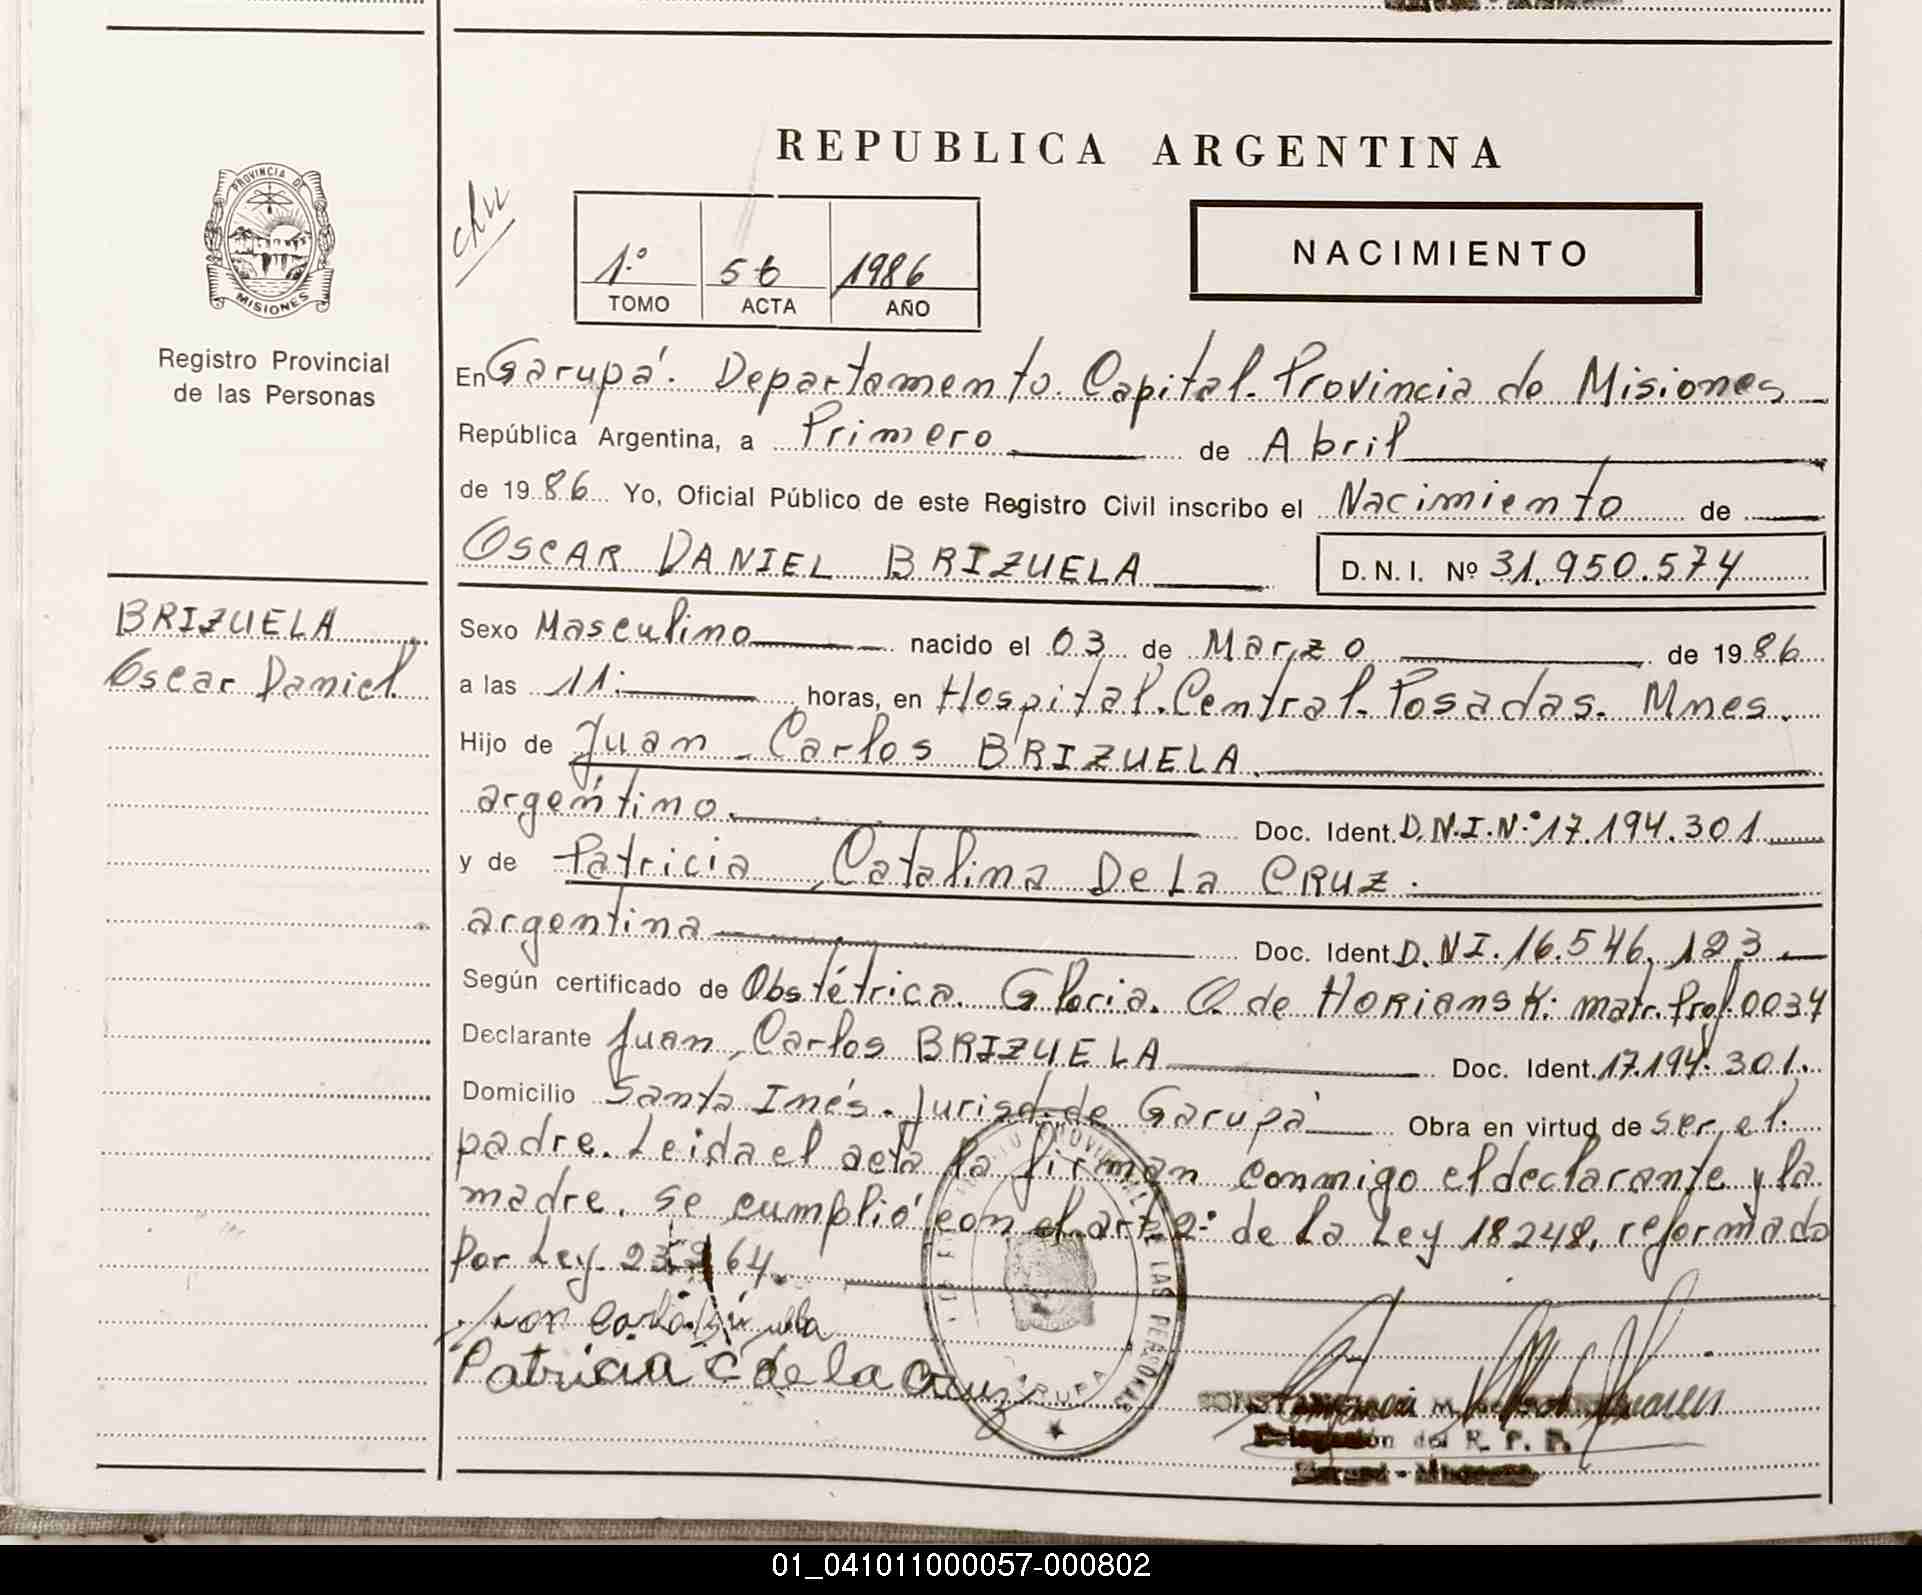 REPUBLICA ARGENTINA
PROVINCIA DE
MISIONES
Registro Provincial
de las Personas
1º 56 1986
TOMO ACTA AÑO
NACIMIENTO
En Garupá. Departamento. Capital. Provincia de Misiones
República Argentina, a Primero de Abril
de 1986 Yo, Oficial Público de este Registro Civil inscribo el Nacimiento de
OSCAR DANIEL BRIZUELA D.N.I. Nº 31.950.574
BRIZUELA
Oscar Daniel
Sexo Masculino nacido el 03 de Marzo de 1986
a las 11: horas, en Hospital. Central. Posadas. Mnes.
Hijo de Juan Carlos BRIZUELA.
argentino. Doc. Ident. D.N.I.Nº 17.194.301
y de Patricia Catalina De La CRUZ.
argentina Doc. Ident. D.NI. 16.546.123
Según certificado de Obstétrica. Gloria. O. de HORIANSK: matr. Prof. 0034
Declarante Juan Carlos BRIZUELA Doc. Ident. 17.194.301.
Domicilio Santa Inés. Jurisd. de Garupá Obra en virtud de ser el
padre. Leida el acta la firman conmigo el declarante y la
madre. Se cumplió con el art 2º de la Ley 18248, reformado
Por Ley. 23264.
Patricia C de la Cruz
LAS PERSONAS
Delegación del R. P. P.
01_041011000057-000802